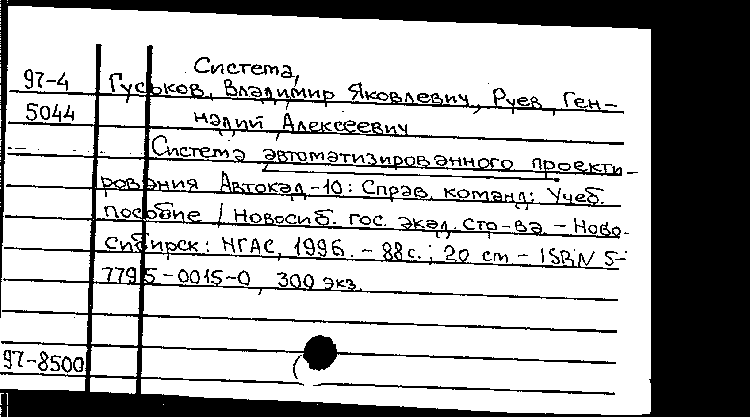 Система,
97-4 Гуськов, Владимир Яковлевич, Руев, Ген-
5044 надий Алексеевич
Система автоматизированного проекти-
рования Автокад-10: Справ. команд: Учеб.
пособие / Новосиб. гос. акад. стр-ва. - Ново-
сибирск: НГАС, 1996. - 88 с.; 20 см - ISBN 5-
7795-0015-0, 300 экз.
97-8500